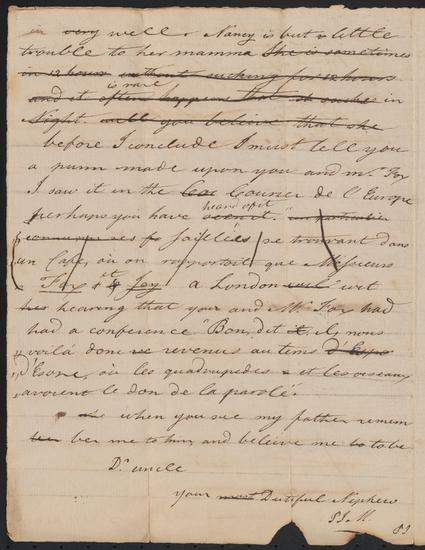 in very well & Nancy is but a little
trouble to her mamma She is sometimes
on 12 hours without suching for 12 hours
is rare
and it often happens that she wakes in
Sight. will you believe that she
before I conclude I must tell you
a punn made upon you and Mr. Fox
I saw it in the Cou Courier de l'Europe
heard of it
perhaps you have seen it. un particulier
se trouvant dans
un Café, où on rapportoit que Messieurs
Fox & et Jay a London wit
his hearing that you and Mr. Fox had
had a conference "Bon, dit it, il, nous
voilá donc re revenus au tems d'Esop
d'Esope, où les quadrupedes & et les oiseaux
avoient le don de la parole".
when you see my father remem
ber me to him, and believe me to to be
Dr. uncle
your most Dutiful Nephew
P J M.